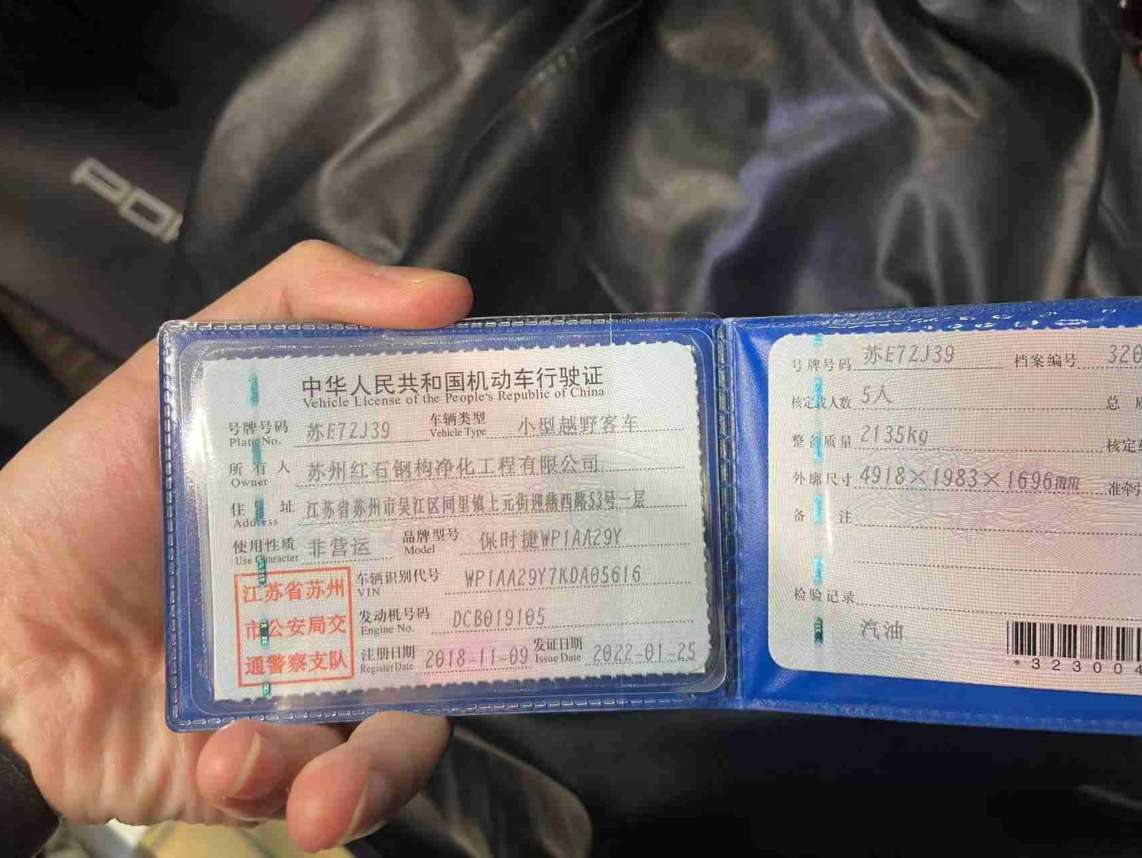 中华人民共和国机动车行驶证
Vehicle License of the People's Republic of China
号牌号码 苏E7ZJ39 车辆类型 小型越野客车
Plate No. Vehicle Type
所有人 苏州红石钢构净化工程有限公司
Owner
住址 江苏省苏州市吴江区同里镇上元街迎燕西路53号一层
Address
使用性质 非营运 品牌型号 保时捷WP1AA29Y
Use Character Model
车辆识别代号 WP1AA29Y7KDA05616
VIN
发动机号码 DCB019105
Engine No.
注册日期 2018-11-09 发证日期 2022-01-25
Register Date Issue Date
江苏省苏州
市公安局交
通警察支队
号牌号码 苏E7ZJ39 档案编号 320
核定载人数 5人 总
整备质量 2135kg 核定
外廓尺寸 4918×1983×1696mm 准牵
备注
检验记录
汽油
*32300